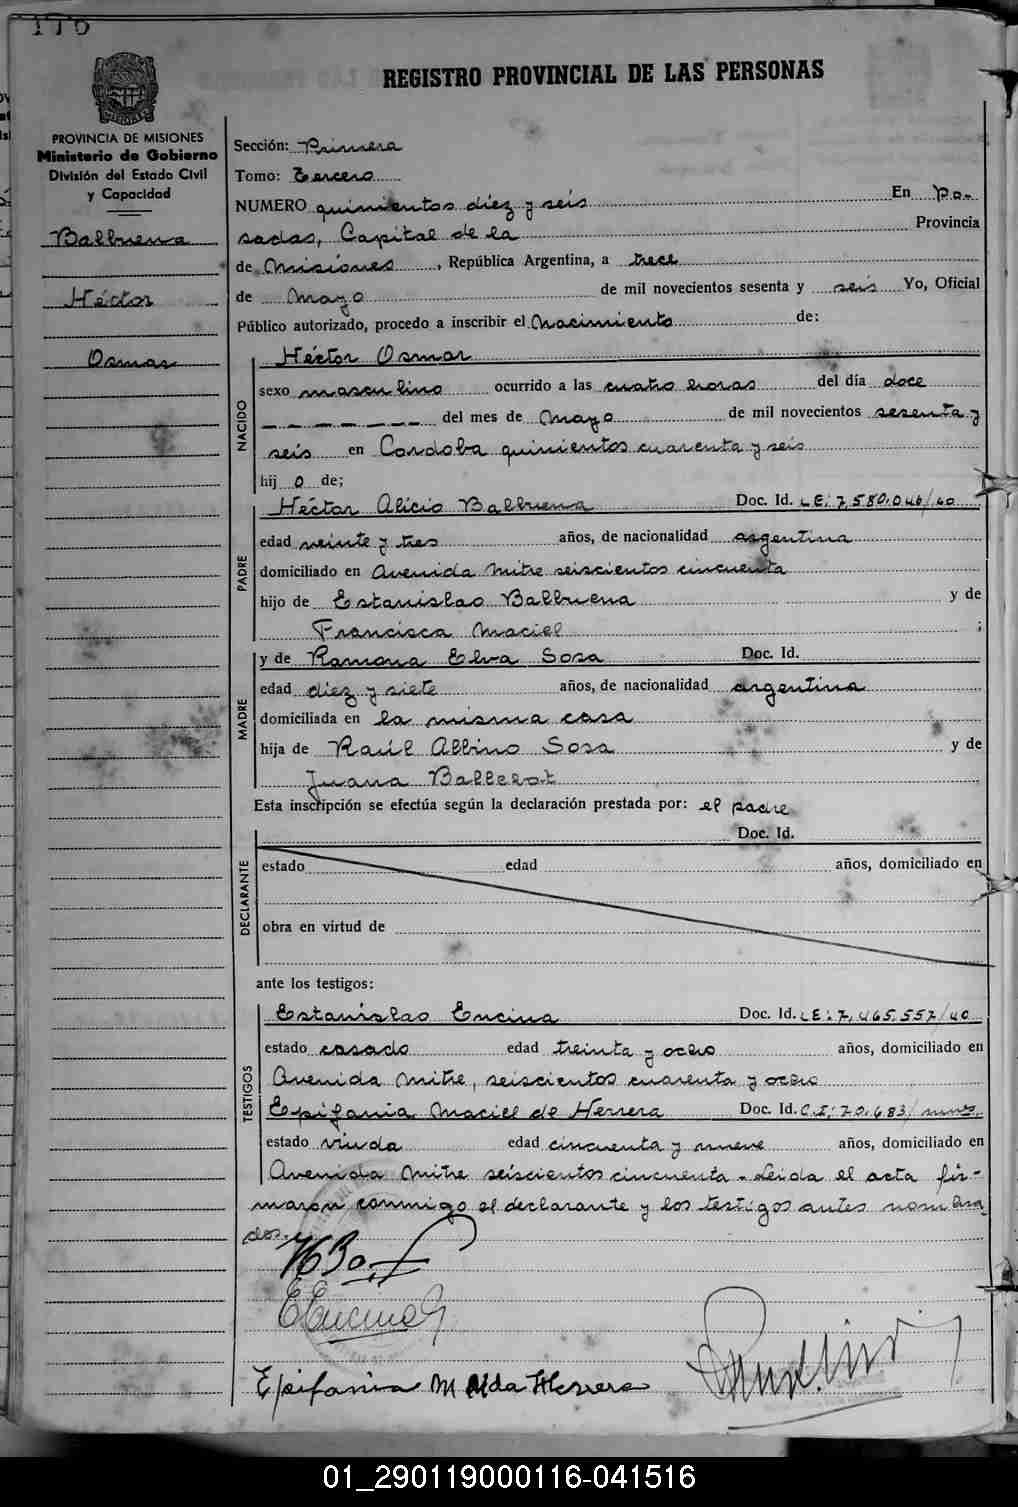 176
REGISTRO PROVINCIAL DE LAS PERSONAS
PROVINCIA DE MISIONES
Ministerio de Gobierno
División del Estado Civil
y Capacidad
Balbuena
Héctor
Osmar
Sección: Primera
Tomo: Tercero
NUMERO quinientos diez y seis En Po-
sadas, Capital de la Provincia
de Misiones, República Argentina, a trece
de Mayo de mil novecientos sesenta y seis Yo, Oficial
Público autorizado, procedo a inscribir el Nacimiento de:
NACIDO
Héctor Osmar
sexo masculino ocurrido a las cuatro horas del día doce
del mes de Mayo de mil novecientos sesenta y
seis en Cordoba quinientos cuarenta y seis
hij o de;
PADRE
Héctor Alicio Balbuena Doc. Id. LE: 7,580.046/40
edad veinte y tres años, de nacionalidad argentina
domiciliado en Avenida Mitre seiscientos cincuenta
hijo de Estanislao Balbuena y de
Francisca Maciel ;
MADRE
y de Ramona Elva Sosa Doc. Id.
edad diez y siete años, de nacionalidad argentina
domiciliada en la misma casa
hija de Raúl Albino Sosa y de
Juana
Esta inscripción se efectúa según la declaración prestada por: el padre
DECLARANTE
Doc. Id.
estado edad años, domiciliado en
obra en virtud de
ante los testigos:
TESTIGOS
Estanislao Encina Doc. Id. LE: 7,465.557/40
estado casado edad treinta y ocho años, domiciliado en
Avenida Mitre, seiscientos cuarenta y ocho
Epifania Maciel de Herrera Doc. Id. C.I: 70.683/mnes.
estado viuda edad cincuenta y nueve años, domiciliado en
Avenida Mitre seiscientos cincuenta - Leida el acta fir-
maron conmigo el declarante y los testigos antes nombra
dos.
EEncina
Epifania M Vda Herrera
01_290119000116-041516